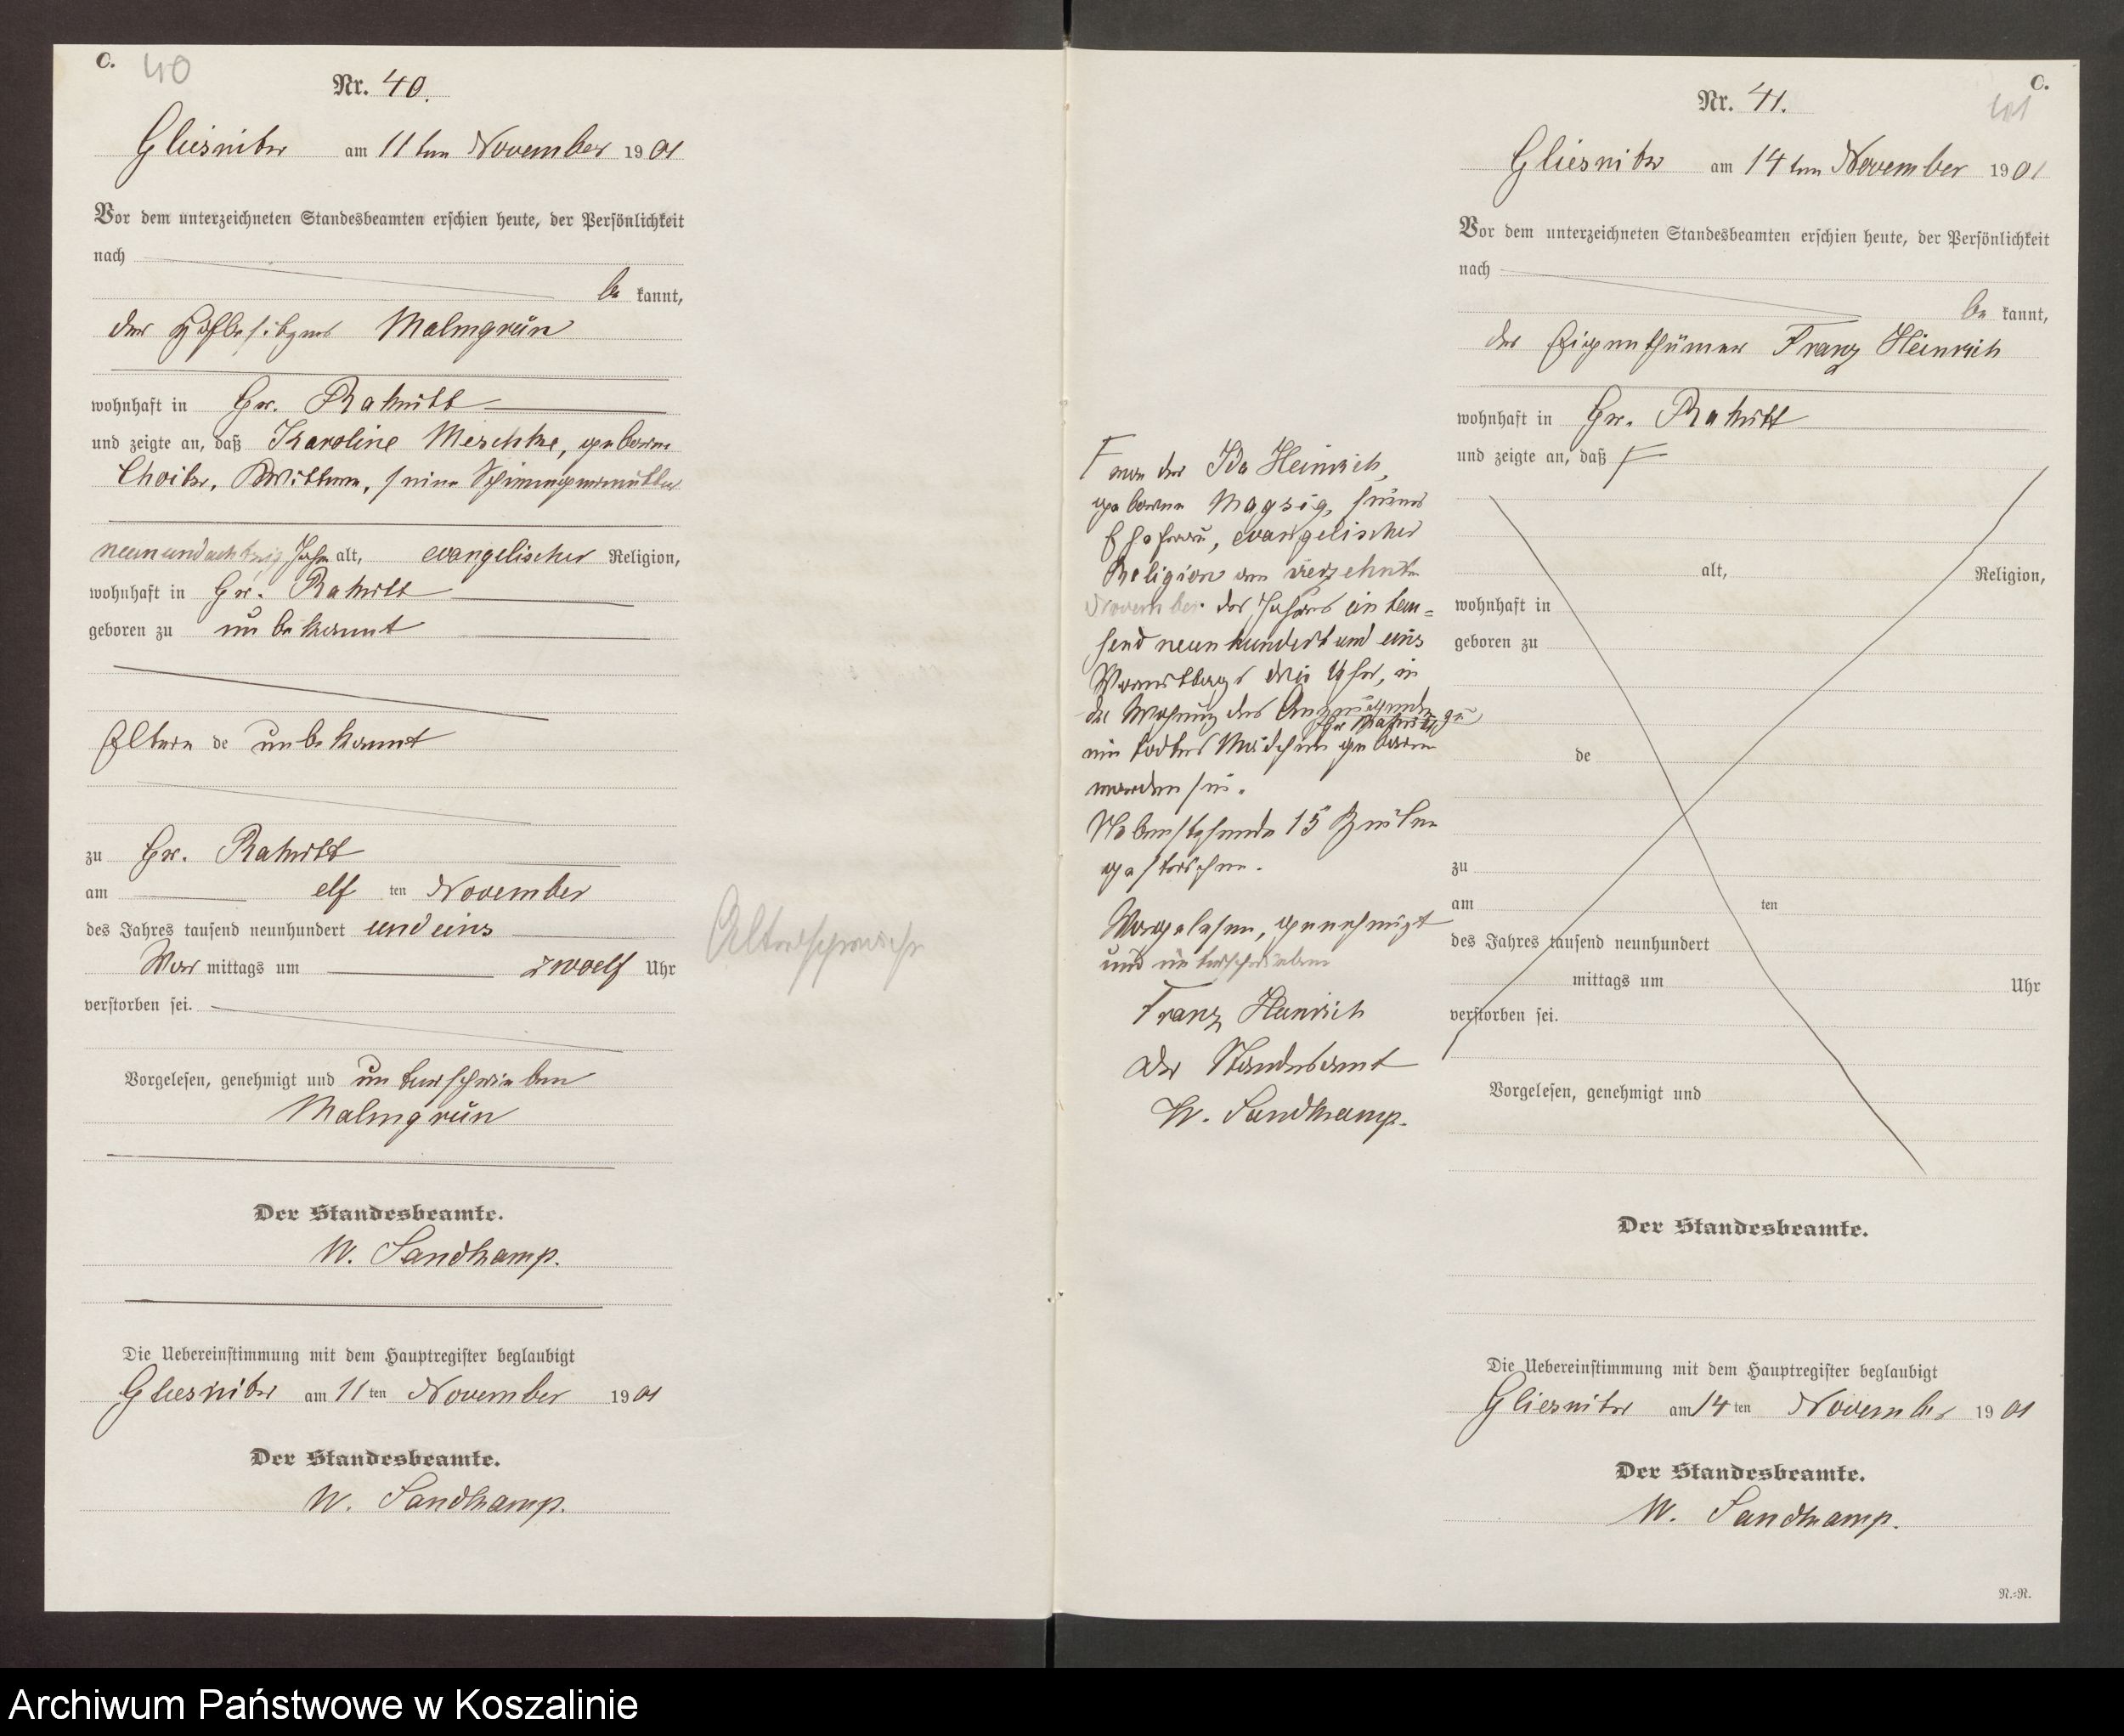 C. 40
Nr. 40.
Gliesnitz am 11ten November 1901
Vor dem unterzeichneten Standesbeamten erschien heute, der Persönlichkeit
nach
be kannt,
der Hofbesitzer Malmgrün
wohnhaft in Gr. Rakitt
und zeigte an, daß Karoline Meschke, geborne
Wittwe, seine Schwiegermutter
neunundachtzig Jahre alt, evangelischer Religion,
wohnhaft in Gr. Rakitt
geboren zu unbekannt
Eltern de unbekannt
zu Gr. Rakitt
am elf ten November
des Jahres tausend neunhundert und eins
Vor mittags um zwoelf Uhr
verstorben sei.
Vorgelesen, genehmigt und unterschrieben
Malmgrün
Der Standesbeamte.
W. Sandkamp.
Die Uebereinstimmung mit dem Hauptregister beglaubigt
Gliesnitz am 11ten November 1901
Der Standesbeamte.
W. Sandkamp.
Altersschwäche
C.
41
Nr. 41.
Gliesnitz am 14ten November 1901
Vor dem unterzeichneten Standesbeamten erschien heute, der Persönlichkeit
nach
be kannt,
der Eigenthümer Franz Heinrich
wohnhaft in Gr. Rakitt
und zeigte an, daß F
alt, Religion,
wohnhaft in
geboren zu
de
zu
am ten
des Jahres tausend neunhundert
mittags um Uhr
verstorben sei.
Vorgelesen, genehmigt und
F von der Ida Heinrich,
geborne Magsig, seiner
Ehefrau, evangelischer
Religion am vierzehnten
November des Jahres ein tau=
send neunhundert und eins
Vormittags drei Uhr, in
der Wohnung des Anzeigenden zu
Gr. Rakitt
ein todtes Mädchen geboren
worden sei.
Nebenstehende 15 Zeilen
gestrichen.
Vorgelesen, genehmigt
und unterschrieben
Franz Heinrich
Der Standesamt
W. Sandkamp.
Der Standesbeamte.
Die Uebereinstimmung mit dem Hauptregister beglaubigt
Gliesnitz am 14ten November 1901
Der Standesbeamte.
W. Sandkamp.
N.=N.
Archiwum Państwowe w Koszalinie